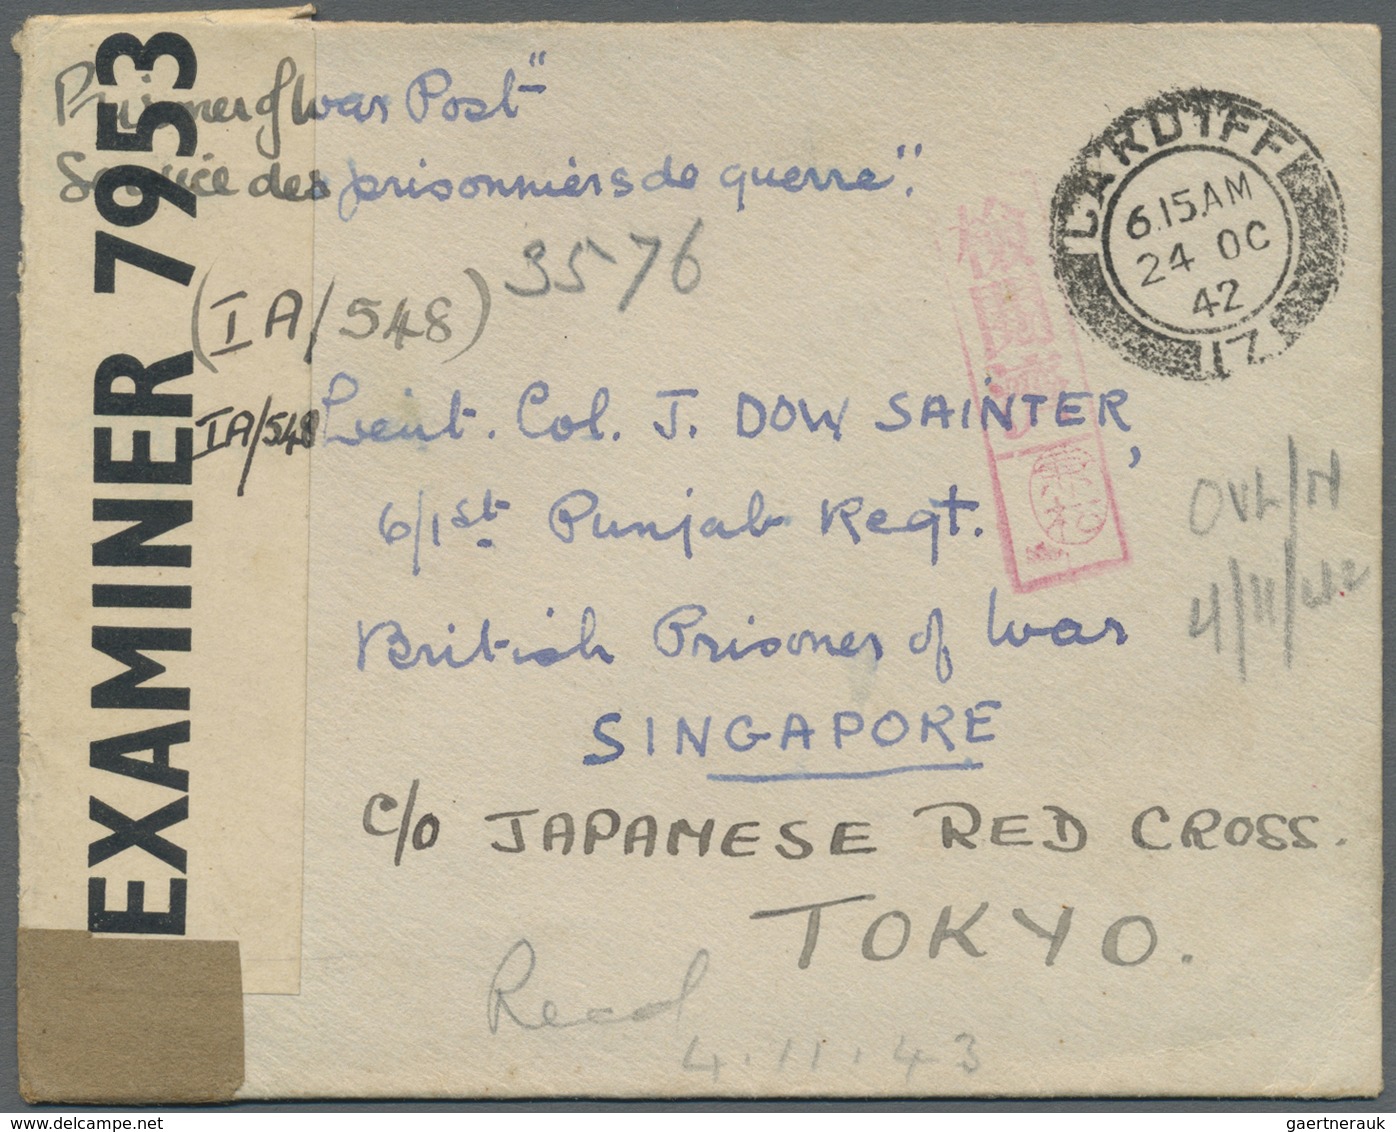 Prisoner of War Post"
Service des prisonniers de guerre".
EXAMINER 7953
CARDIFF
6.15AM
24 OC
42
(IA/548)
3576
検閲済
IA/548
Lieut. Col. J. DOW SAINTER,
6/1st Punjab Regt.
British Prisoner of War
SINGAPORE
OVL/N
4/11/42
c/o JAPANESE RED CROSS.
TOKYO.
Recd
4.11.43
gaertnerauk